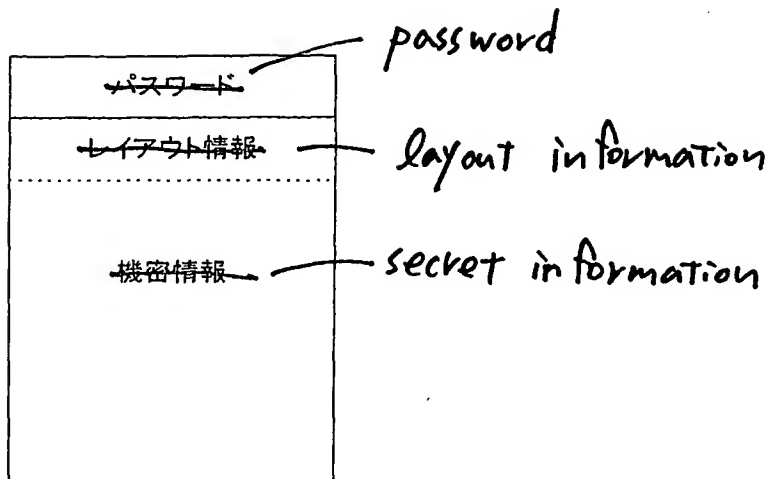 password
パスワード
レイアウト情報 layout information
機密情報 secret information